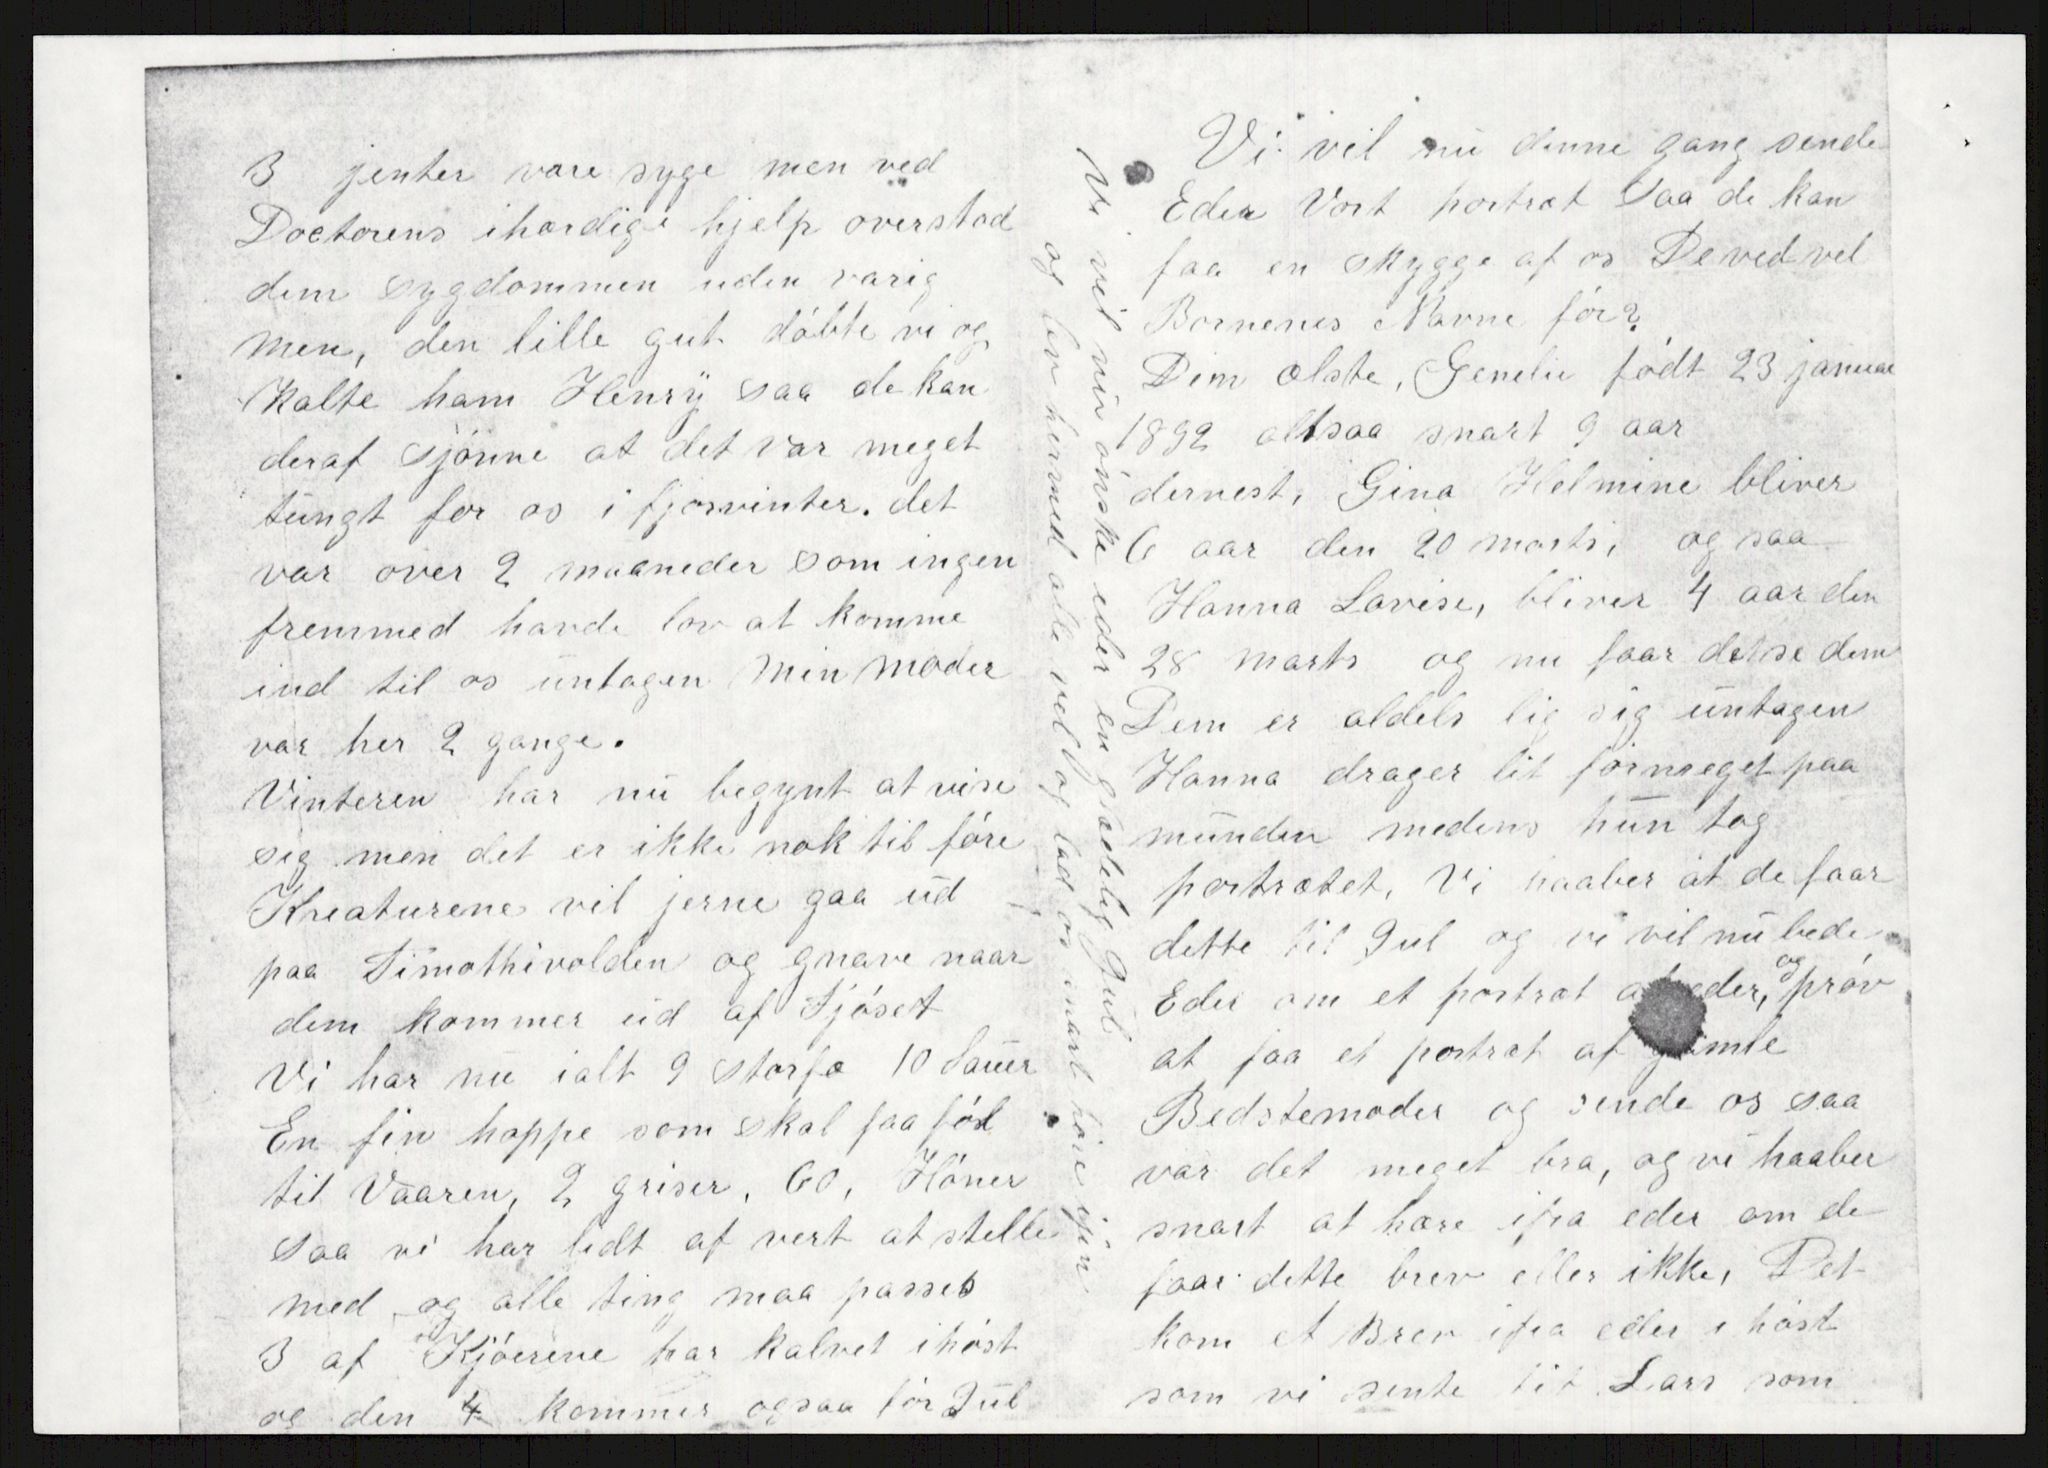 3 jenter vare syge men ved
Doctorens ihærdige hjelp overstod
dem sygdommen uden varig
men, den lille gut døbte vi og
kalte ham Henry saa de kan
deraf sjønne at det var meget
tungt for os i fjorvinter. det
var over 2 maaneder som ingen
fremmed havde lov at komme
ind til os untagen min moder
var her 2 gange.
Vinteren har nu begynt at vise
sig men det er ikke nok til føre
Kreaturene vil jerne gaa ud
paa Timothivolden og gnave naar
dem kommer ud af Fjøset
Vi har nu ialt 9 storfæ 10 Sauer
En fin hoppe som skal faa føl
til Vaaren, 2 griser, 60, Høner
saa vi har lidt af vert at stelle
med og alle ting maa passes
3 af Kjøerene har kalvet ihøst
og den 4 kommer ogsaa før Jul
Vi vil nu ønske eder en glædelig Jul
og lev hermed alle vel og lad os snart høre ijen
Vi vil nu denne gang sende
Eder Vort portræt saa de kan
faa en skygge af os De ved vel
Børnenes Navne før?
Dem ælste, Genelie født 23 januar
1892 altsaa snart 9 aar
dernest, Gina Helmine bliver
6 aar den 20 marts, og saa
Hanna Lovise, bliver 4 aar den
28 marts og nu faar de se dem
Dem er aldels lig sig untagen
Hanna drager lit formeget paa
munden medens hun tog
portrætet, Vi haaber at de faar
dette til Jul og vi vil nu bede
Eder om et portræt af eder, og prøv
at faa et portræt af gamle
Bedstemoder og sende os saa
var det meget bra, og vi haaber
snart at høre ifra eder om de
faar dette brev eller ikke, Det
kom et Brev ifra eder i høst
som vi sente til Lars som